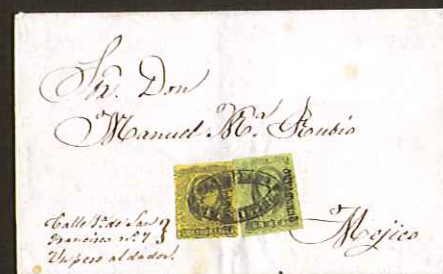 Sr. Don
Manuel Ma. Rubio
Calle 1a. de San
Francisco no. 7
Un peso al dador.
Mejico